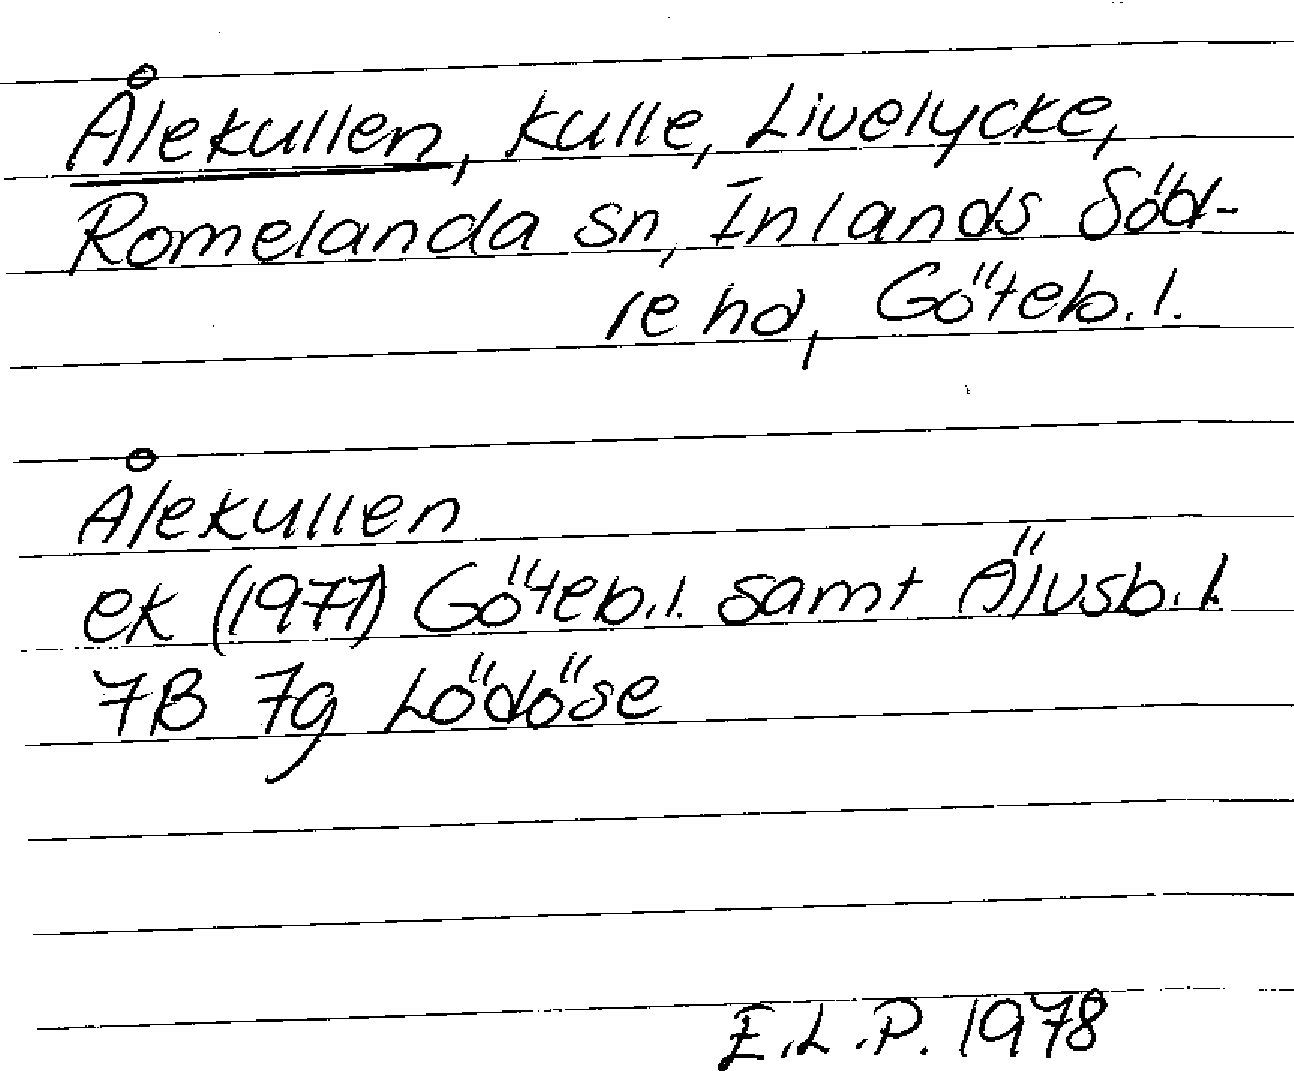 Ålekullen, kulle, Livelycke,
Romelanda sn, Inlands Söd-
re hd, Göteb.l.
Ålekullen
ek (1977) Göteb.l. samt Älvsb.l.
7B 7g Lödöse
E.L.P. 1978